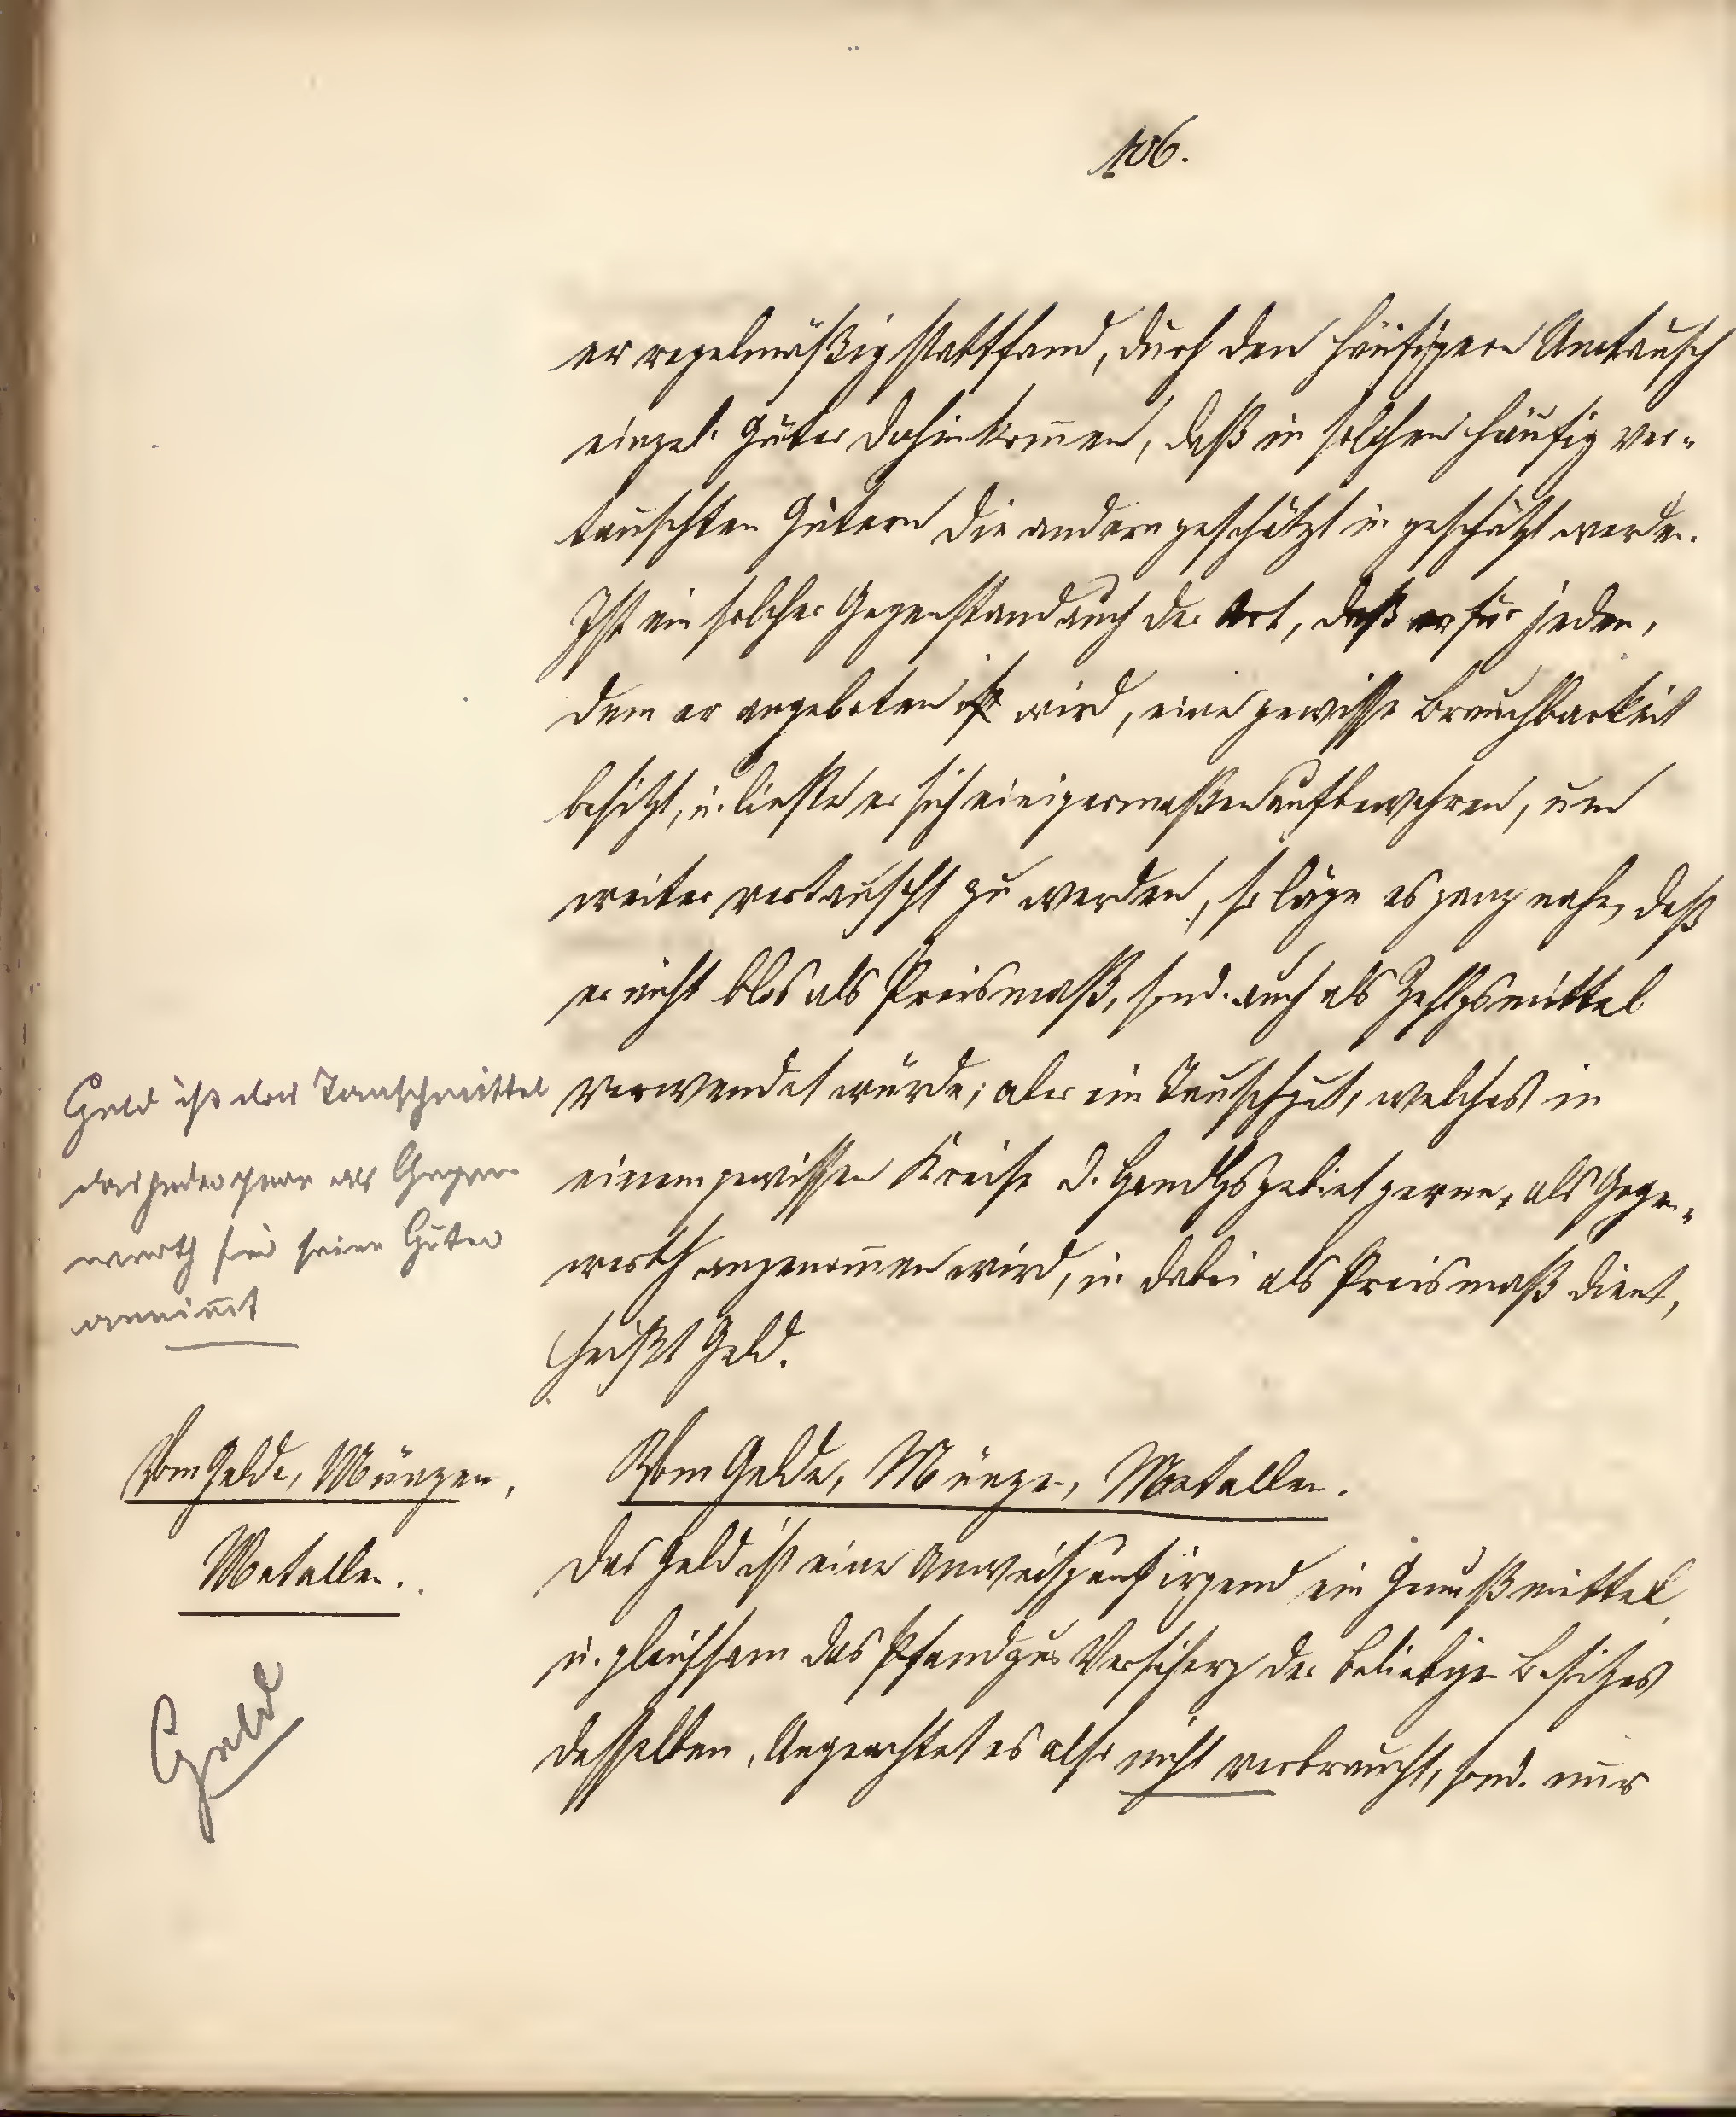 106.
er regelmäßig stattfand, durch den häufigern Umtausch
einzel. Güter dahin kom̅en, daß in solchen häufig ver-
tauschten Gütern die andern geschätzt u. geschätzt werden.
Ist ein solcher Gegenstand auch der Art, daß er für jeden,
dem er angeboten ist wird, eine gewisse Brauchbarkeit
besitzt, u. ließe er sich einigermaßen aufbewahren, um
weiter vertauscht zu werden, so läge es ganz nahe, daß
er nicht blos als Preismaß, sond. auch als Zahlgsmittel
verwendet würde; aber ein Tauschgut, welches in
einem gewissen Kreise d. Handlgsgebiet gerne, als Gegen-
werth angenom̅en wird, u. dabei als Preismaß dient,
heißt Geld.
Geld ist das Tauschmittel
das jeder gerne als Gegen-
werth für seine Güter
annim̅t
Vom Gelde, Münzen,
Metallen.
Geld
Vom Gelde, Münzen, Metallen.
Das Geld ist eine Anweisg auf irgend ein Genußmittel
u. gleichsam das Pfand zur Versicherg des beliebigen Besitzes
desselben. Ungeachtet es also nicht verbraucht, sond. nur